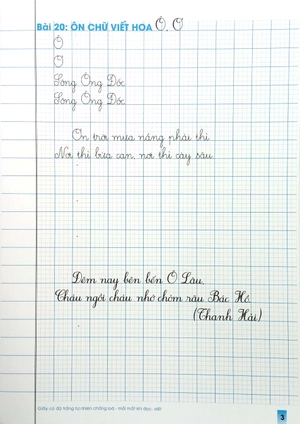 Bài 20: ÔN CHỮ VIẾT HOA Ô, Ơ
Ô
Ơ
Sông Ông Đốc
Sông Ông Đốc
Ơn trời mưa nắng phải thì
Nơi thì bừa cạn, nơi thì cày sâu.
Đêm nay bên bến Ô Lâu,
Cháu ngồi cháu nhớ chòm râu Bác Hồ.
(Thanh Hải)
Giấy có độ trắng tự nhiên chống loá - mỏi mắt khi đọc, viết
3